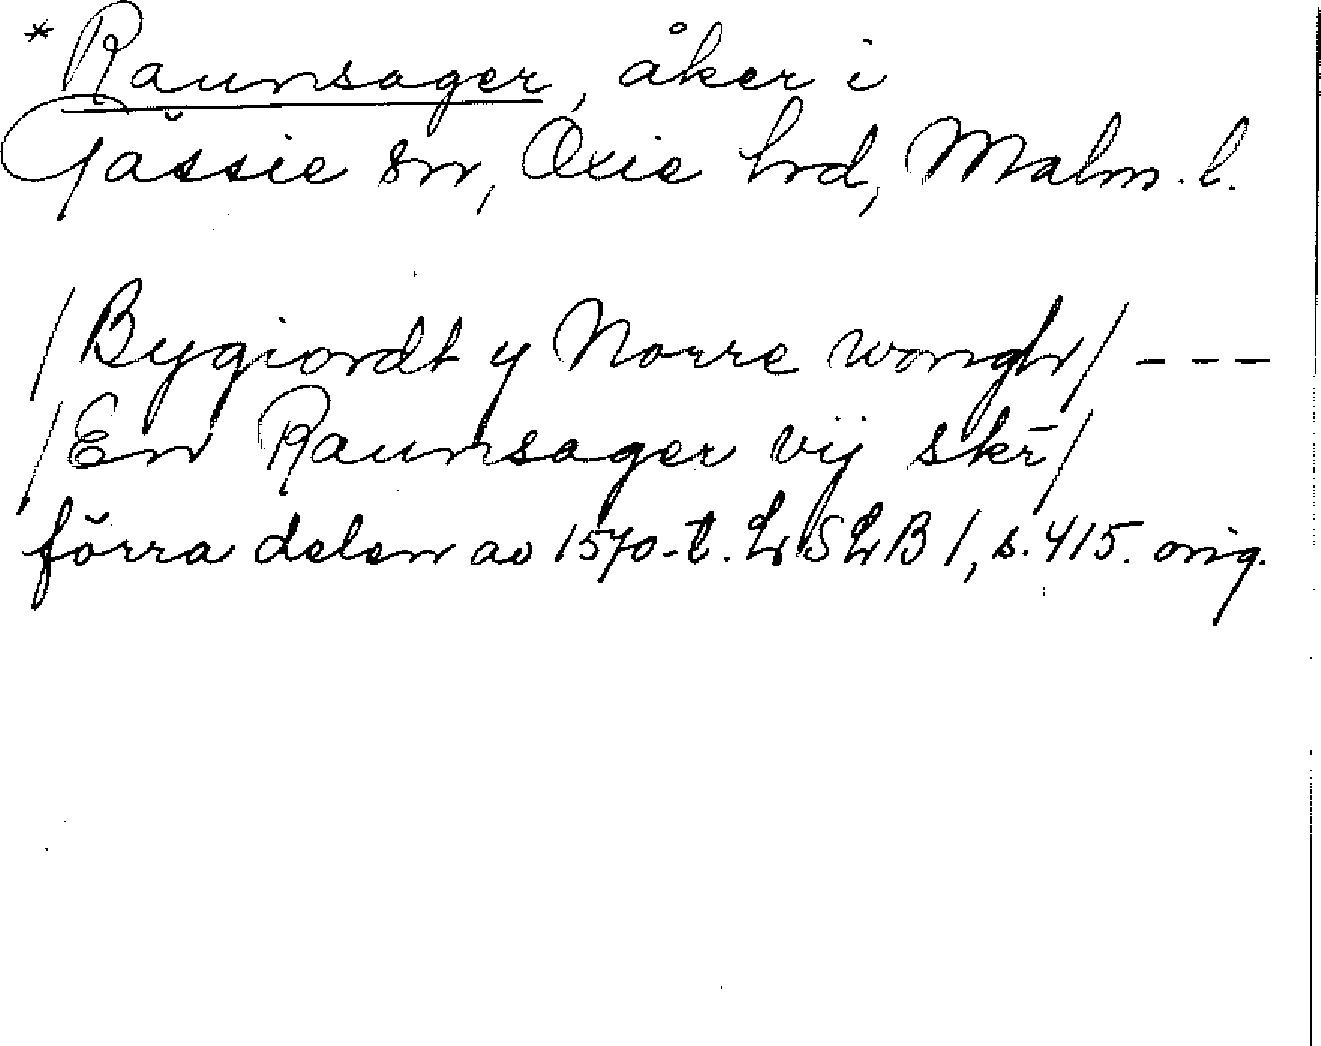 *Raunsager, åker i
Gässie sn, Oxie hrd, Malm. l.
/Bygiordt y Norre wongh/ - - -
/En Raunsager vij skr/
förra delen av 1570-t. LrSLrB 1, s. 415. orig.